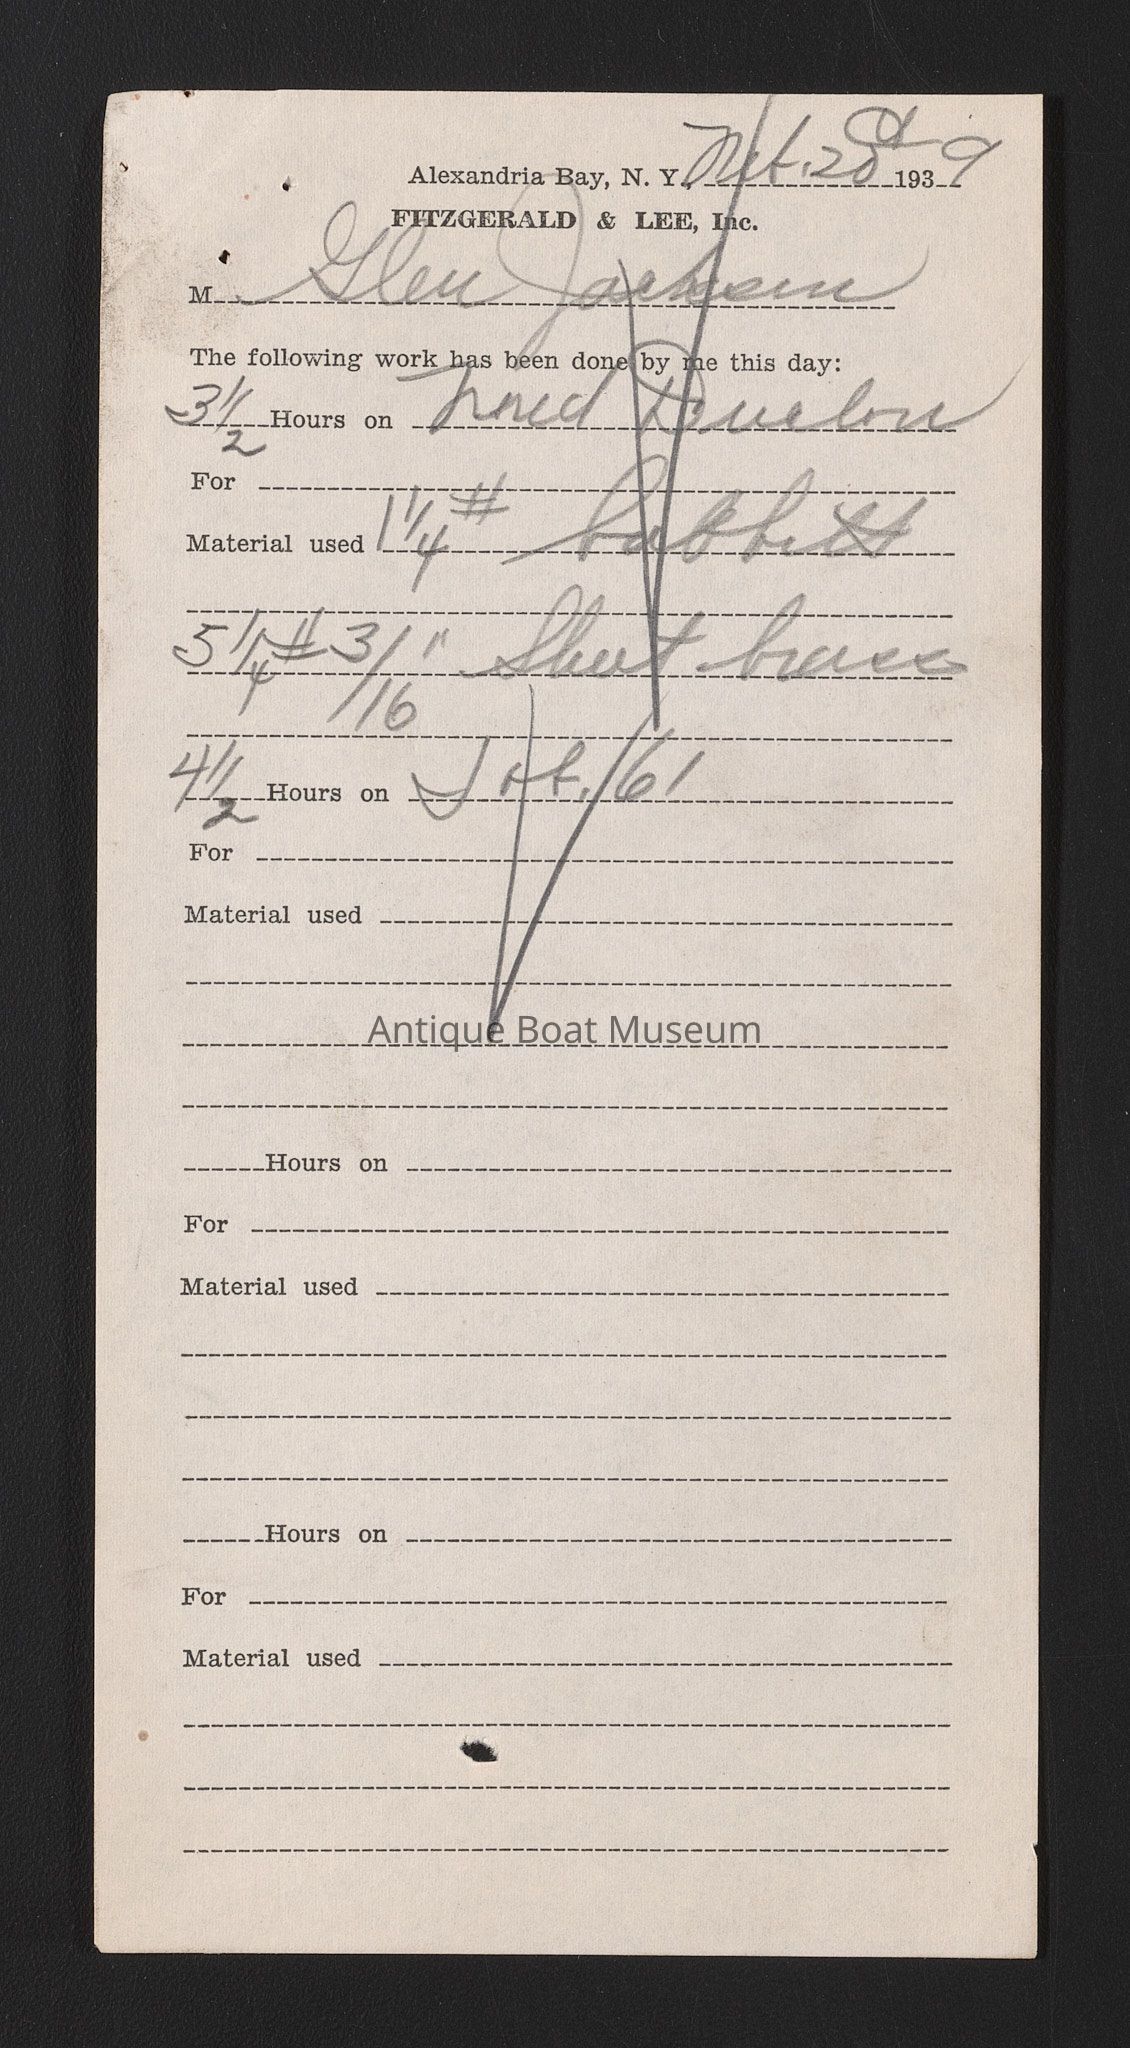 Alexandria Bay, N. Y., Oct. 20th 1939
FITZGERALD & LEE, Inc.
M Glen Jackson
The following work has been done by me this day:
3 1/2 Hours on
For
Material used 1 1/4 # babbitt
5 1/4 # 3/16" Sheet brass
4 1/2 Hours on Int. 61
For
Material used
Antique Boat Museum
Hours on
For
Material used
Hours on
For
Material used